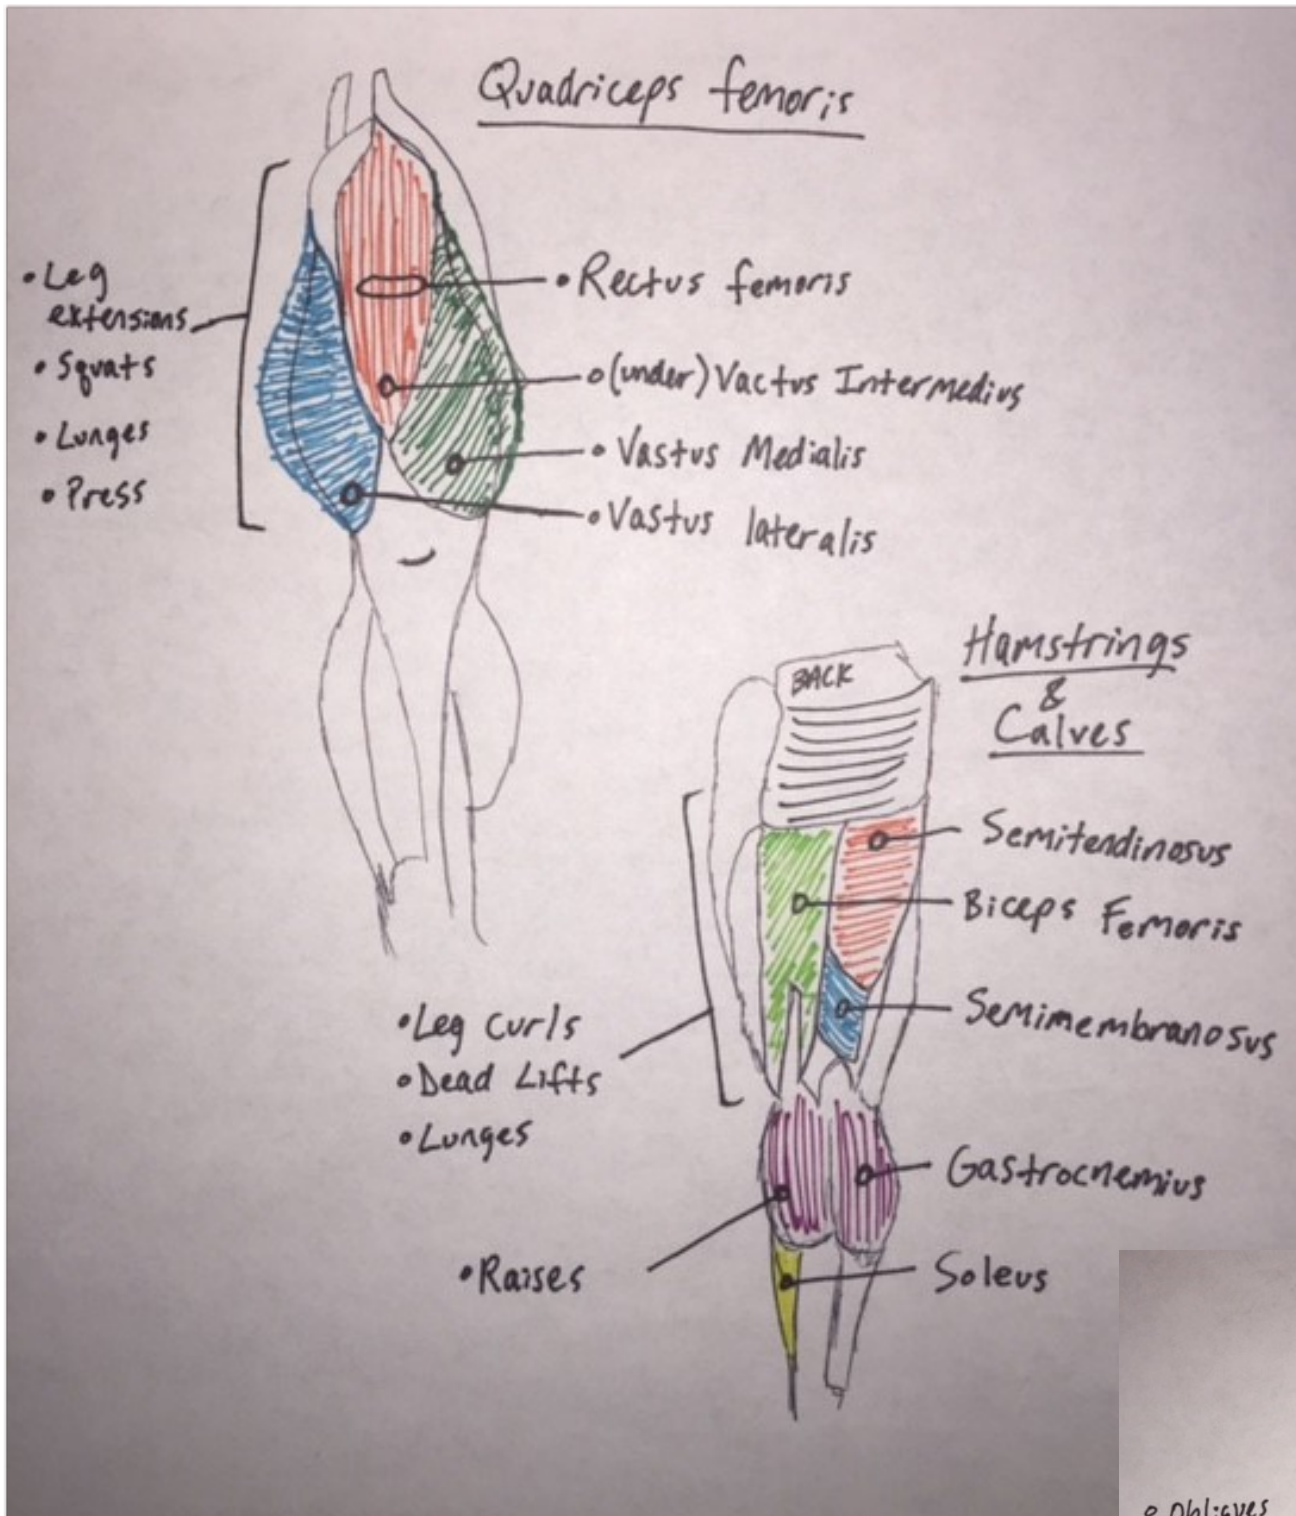 Quadriceps femoris
• Leg
extensions
• Squats
• Lunges
• Press
• Rectus femoris
o (under) Vactus Intermedius
• Vastus Medialis
• Vastus lateralis
Hamstrings
&
Calves
BACK
Semitendinosus
Biceps Femoris
Semimembranosus
• Leg curls
• Dead Lifts
• Lunges
Gastrocnemius
• Raises
Soleus
• Obliques